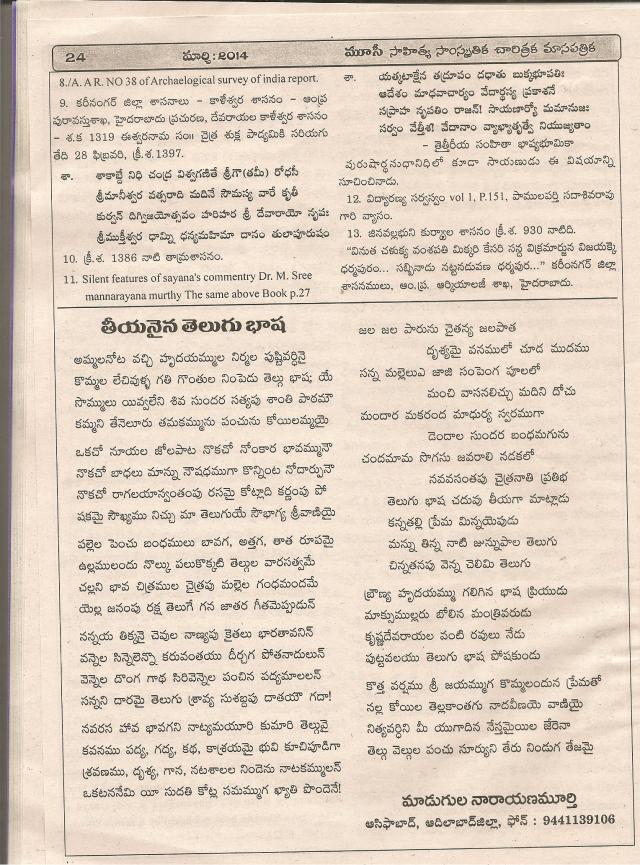 24 మార్చి: 2014 మూసీ సాహిత్య సాంస్కృతిక చారిత్రక మాసపత్రిక
8./A. AR. NO 38 of Archaelogical survey of india report.
9. కరీంనగర్ జిల్లా శాసనాలు - కాళేశ్వర శాసనం - ఆంప్ర
పురావస్తుశాఖ, హైదరాబాదు ప్రచురణ, దేవరాయల కాళేశ్వర శాసనం
- శ.క 1319 ఈశ్వరనామ సం॥ చైత్ర శుక్ల పాడ్యమికి సరియగు
తేది 28 ఫిబ్రవరి, క్రీ.శ.1397.
శా. శాకాబ్దే నిధి చంద్ర విశ్వగణితే శ్రీగౌ(తమీ) రోధసీ
శ్రీమానీశ్వర వత్సరాది మదినే సౌమస్య వారే కృతీ
కుర్వన్ దిగ్విజయోత్సవం హరిహర శ్రీ దేవారాయో నృపః
శ్రీముక్తీశ్వర ధామ్ని ధన్యమహిమా దానం తులాపూరుషం
10. క్రీ.శ. 1386 నాటి తామ్రశాసనం.
11. Silent features of sayana's commentry Dr. M. Sree
mannarayana murthy The same above Book p.27
శా. యత్కటాక్షేన తద్రూపం దధాతు బుక్కభూపతిః
ఆదేశం మాధవాచార్యం వేదార్థస్య ప్రకాశనే
సప్రాహ నృపతిం రాజన్! సాయణార్యో మమానుజః
సర్వం వేత్తీశ! వేదానాం వ్యాఖ్యాతృత్వే నియుజ్యతాం
- తైత్తిరీయ సంహితా భాష్యభూమికా
పురుషార్థసుధానిధిలో కూడా సాయణుడు ఈ విషయాన్ని
సూచించినాడు.
12. విద్యారణ్య సర్వస్వం vol 1, P.151, పాములపర్తి సదాశివరావు
గారి వ్యాసం.
13. జినవల్లభుని కుర్క్యాల శాసనం క్రీ.శ. 930 నాటిది.
"వినుత చళుక్య వంశపతి మిక్కరి కేసరి సన్ద విక్రమార్జున విజయక్కె
ధర్మపురం... సబ్బినాడు నట్టనడువణ ధర్మపుర..." కరీంనగర్ జిల్లా
శాసనములు, ఆం.ప్ర. ఆర్కియాలజీ శాఖ, హైదరాబాదు.
తీయనైన తెలుగు భాష
అమ్మలనోట వచ్చి హృదయమ్ముల నిర్మల పుష్టివర్ధినై
కొమ్మల లేచివుళ్ళ గతి గొంతుల నింపెడు తెల్గు భాష; యే
సొమ్ములు యివ్వలేని శివ సుందర సత్యపు శాంతి పాఠమౌ
కమ్మని తేనెలూరు తమకమ్మును పంచును కోయిలమ్మయై
ఒకచో నూయల జోలపాట నొకచో నోంకార భావమ్మునౌ
నొకచో బాధలు మాన్ను నౌషధముగా కొన్నింట నోదార్పునౌ
నొకచో రాగలయాన్వంతంపు రసమై కోట్లాది కర్ణంపు పో
షకమై సౌఖ్యము నిచ్చు మా తెలుగుయే సౌభాగ్య శ్రీవాణియై
పల్లెల పెంచు బంధములు బావగ, అత్తగ, తాత రూపమై
ఉల్లములందు నొల్కు పలుకొక్కటి తెల్గుల వారసత్వమే
చల్లని భావ చిత్రముల చైత్రపు మల్లెల గంధమందమే
యెల్ల జనంపు రక్ష తెలుగే గన జాతర గీతమెప్పుడున్
నన్నయ తిక్కనై చెవుల నాణ్యపు కైతలు భారతావనిన్
వన్నెల సిన్నెలెన్నొ కరువంతయు దీర్చగ పోతనాదులున్
వెన్నెల దొంగ గాథ సిరివెన్నెల పంచిన పద్యమాలలన్
సన్నని దారమై తెలుగు శ్రావ్య సుశబ్దపు దాతయౌ గదా!
నవరస హావ భావగని నాట్యమయూరి కుమారి తెల్గువై
కవనము పద్య, గద్య, కథ, కాశ్రయమై భువి కూచిపూడిగా
శ్రవణము, దృశ్య, గాన, నటశాలల నిండెను నాటకమ్ములన్
ఒకటననేమి యీ సుదతి కోట్ల సమమ్ముగ ఖ్యాతి పొందెనే!
జల జల పారును చైతన్య జలపాత
దృశ్యమై వనములో చూడ ముదము
సన్న మల్లెలుఎ జాజి సంపెంగ పూలలో
మంచి వాసనలిచ్చు మదిని దోచు
మందార మకరంద మాధుర్య స్వరముగా
డెందాల సుందర బంధమగును
చందమామ సొగసు జవరాలి నడకలో
నవవసంతపు చైత్రనాతి ప్రతిభ
తెలుగు భాష చదువు తీయగా మాట్లాడు
కన్నతల్లి ప్రేమ మిన్నయెపుడు
మన్ను తిన్న నాటి జున్నుపాల తెలుగు
చిన్నతనపు వెన్న చెలిమి తెలుగు
బ్రౌణ్య హృదయమ్ము గలిగిన భాష ప్రియుడు
మాక్సుముల్లరు బోలిన మంత్రివరుడు
కృష్ణదేవరాయల వంటి రవులు నేడు
పుట్టవలయు తెలుగు భాష పోషకుండు
కొత్త వర్షము శ్రీ జయమ్ముగ కొమ్మలందున ప్రేమతో
నల్ల కోయిల తెల్లకాంతగు నాదవీణయె వాణియై
నిత్యవర్ధిని మీ యుగాదిన నేస్తమైయిల జేరెనా
తెల్గు వెల్గుల పంచు సూర్యుని తేరు నిండుగ తేజమై
మాడుగుల నారాయణమూర్తి
ఆసిఫాబాద్, ఆదిలాబాద్‌జిల్లా, ఫోన్ : 9441139106